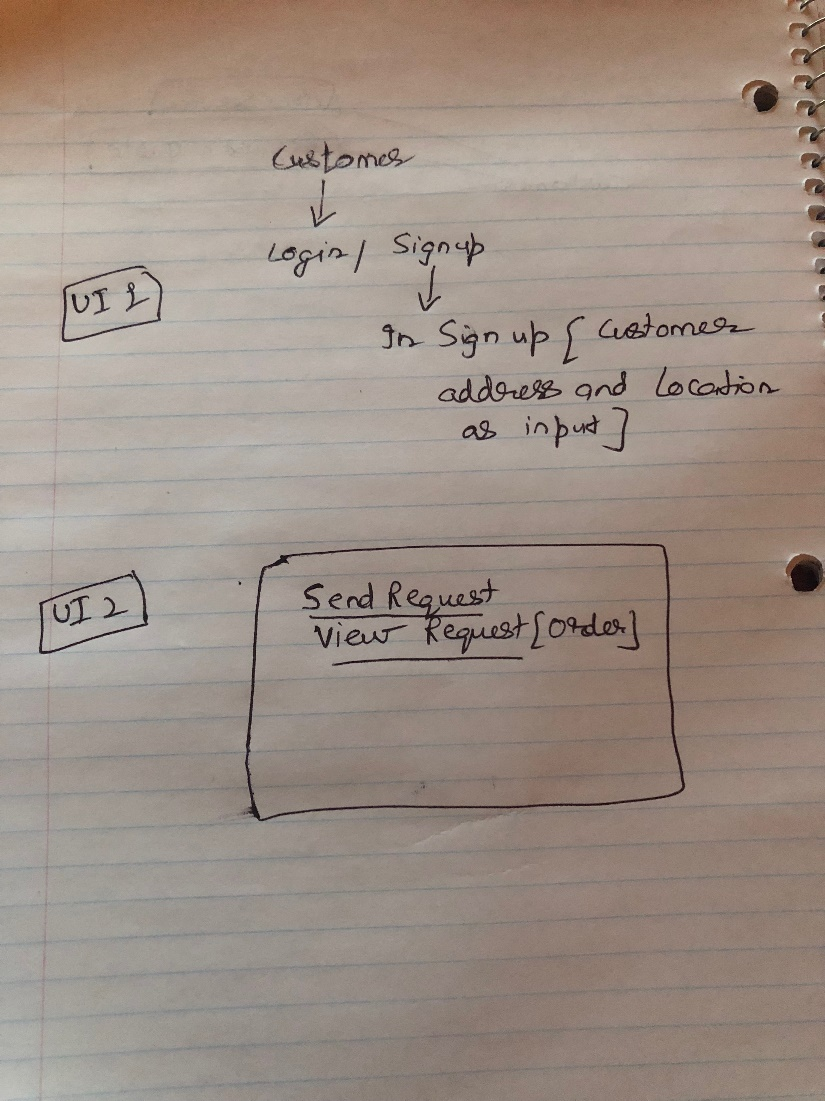 Customer
Login / Signup
UI 1
In Sign up [ Customer
address and Location
as input ]
UI 2
Send Request
View Request [Order]